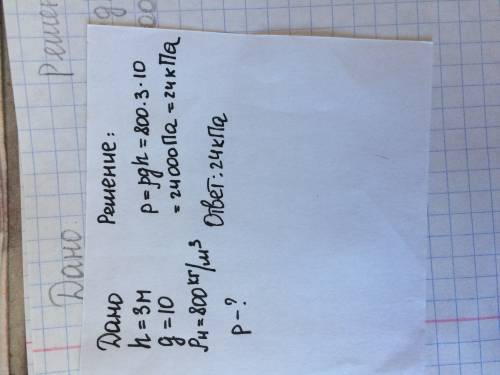 Дано
h = 3м
g = 10
ρн = 800 кг/м³
P - ?
Решение:
P = ρgh = 800 . 3 · 10
= 24000Па = 24кПа
Ответ: 24кПа
Дано.
Решен